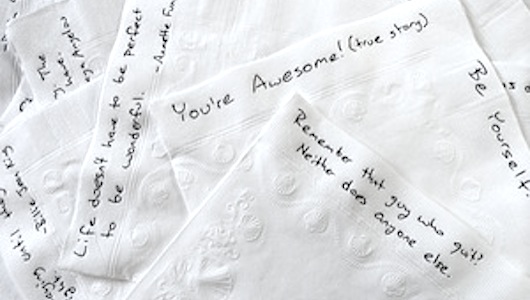 The
Angelou
Life doesn't have to be perfect
to be wonderful.
- Annette Fun
You're Awesome! (true story)
Be Yourself
Remember that guy who quit?
Neither does anyone else.
until they
- Billie Jean King